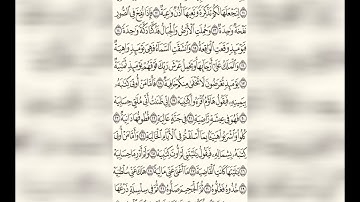 لِنَجْعَلَهَا لَكُمْ تَذْكِرَةً وَتَعِيَهَا أُذُنٌ وَٰعِيَةٌ ١٢ فَإِذَا نُفِخَ فِي ٱلصُّورِ
نَفْخَةٌ وَٰحِدَةٌ ١٣ وَحُمِلَتِ ٱلْأَرْضُ وَٱلْجِبَالُ فَدُكَّتَا دَكَّةً وَٰحِدَةً ١٤
فَيَوْمَئِذٍ وَقَعَتِ ٱلْوَاقِعَةُ ١٥ وَٱنشَقَّتِ ٱلسَّمَآءُ فَهِيَ يَوْمَئِذٍ وَاهِيَةٌ ١٦
وَٱلْمَلَكُ عَلَىٰٓ أَرْجَآئِهَا وَيَحْمِلُ عَرْشَ رَبِّكَ فَوْقَهُمْ يَوْمَئِذٍ ثَمَٰنِيَةٌ ١٧
يَوْمَئِذٍ تُعْرَضُونَ لَا تَخْفَىٰ مِنكُمْ خَافِيَةٌ ١٨ فَأَمَّا مَنْ أُوتِيَ كِتَٰبَهُۥ
بِيَمِينِهِۦ فَيَقُولُ هَآؤُمُ ٱقْرَءُوا۟ كِتَٰبِيَهْ ١٩ إِنِّي ظَنَنتُ أَنِّي مُلَٰقٍ حِسَابِيَهْ ٢٠
فَهُوَ فِي عِيشَةٍ رَّاضِيَةٍ ٢١ فِي جَنَّةٍ عَالِيَةٍ ٢٢ قُطُوفُهَا دَانِيَةٌ ٢٣
كُلُوا۟ وَٱشْرَبُوا۟ هَنِيٓـًٔۢا بِمَآ أَسْلَفْتُمْ فِي ٱلْأَيَّامِ ٱلْخَالِيَةِ ٢٤ وَأَمَّا مَنْ أُوتِيَ
كِتَٰبَهُۥ بِشِمَالِهِۦ فَيَقُولُ يَٰلَيْتَنِي لَمْ أُوتَ كِتَٰبِيَهْ ٢٥ وَلَمْ أَدْرِ مَا حِسَابِيَهْ ٢٦
يَٰلَيْتَهَا كَانَتِ ٱلْقَاضِيَةَ ٢٧ مَآ أَغْنَىٰ عَنِّي مَالِيَهْ ٢٨ هَلَكَ عَنِّي سُلْطَٰنِيَهْ ٢٩
خُذُوهُ فَغُلُّوهُ ٣٠ ثُمَّ ٱلْجَحِيمَ صَلُّوهُ ٣١ ثُمَّ فِي سِلْسِلَةٍ ذَرْعُهَا